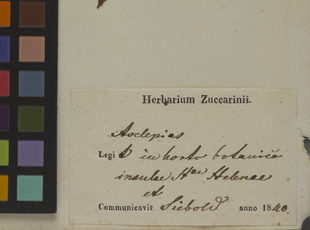 Herbarium Zuccarinii.
Asclepias
Legit in horto botanico
insulae Stae Helenae
et
Communicavit Siebold anno 1840.